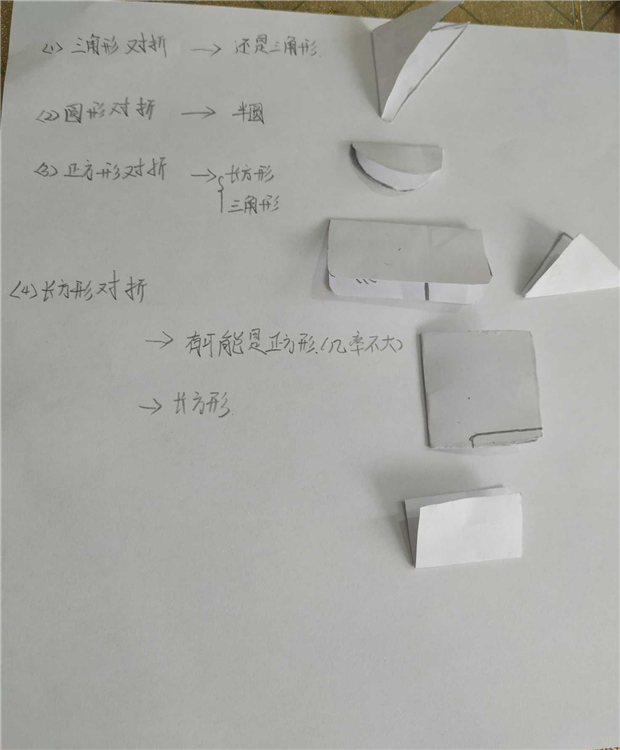 (1) 三角形对折 → 还是三角形
(2) 圆形对折 → 半圆
(3) 正方形对折 → { 长方形
三角形
(4) 长方形对折
→ 有可能是正方形.(几率不大)
→ 长方形